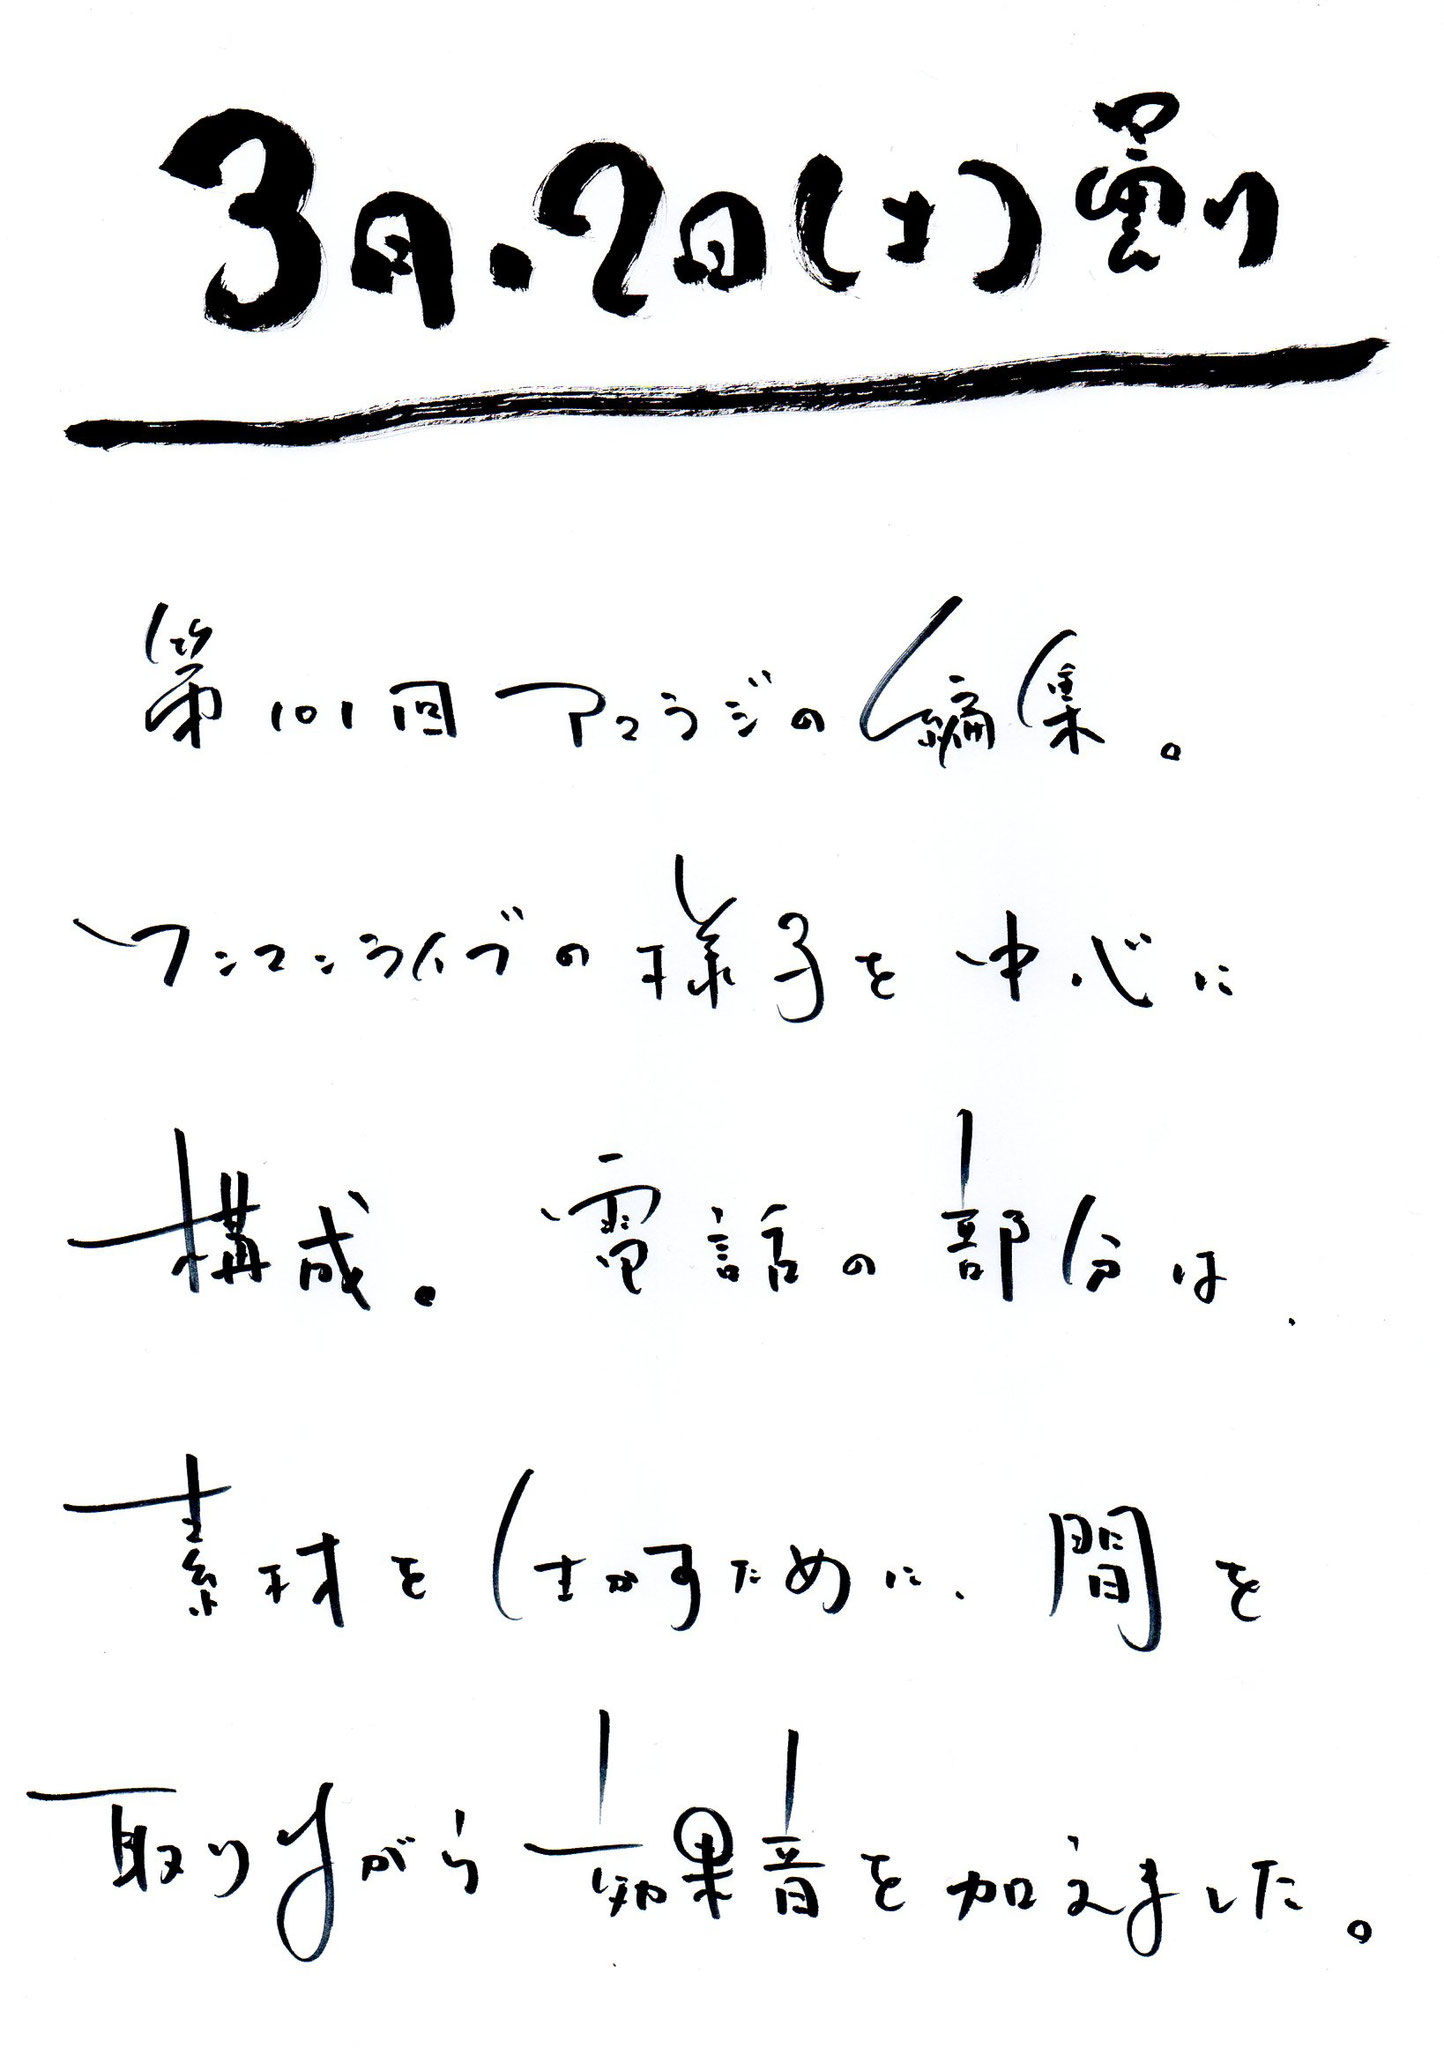 3月.2日(土)曇り
第101回アコラジの編集。
ワンマンライブの様子を中心に
構成。電話の部分は、
素材を生かすために、間を
取りながら効果音を加えました。